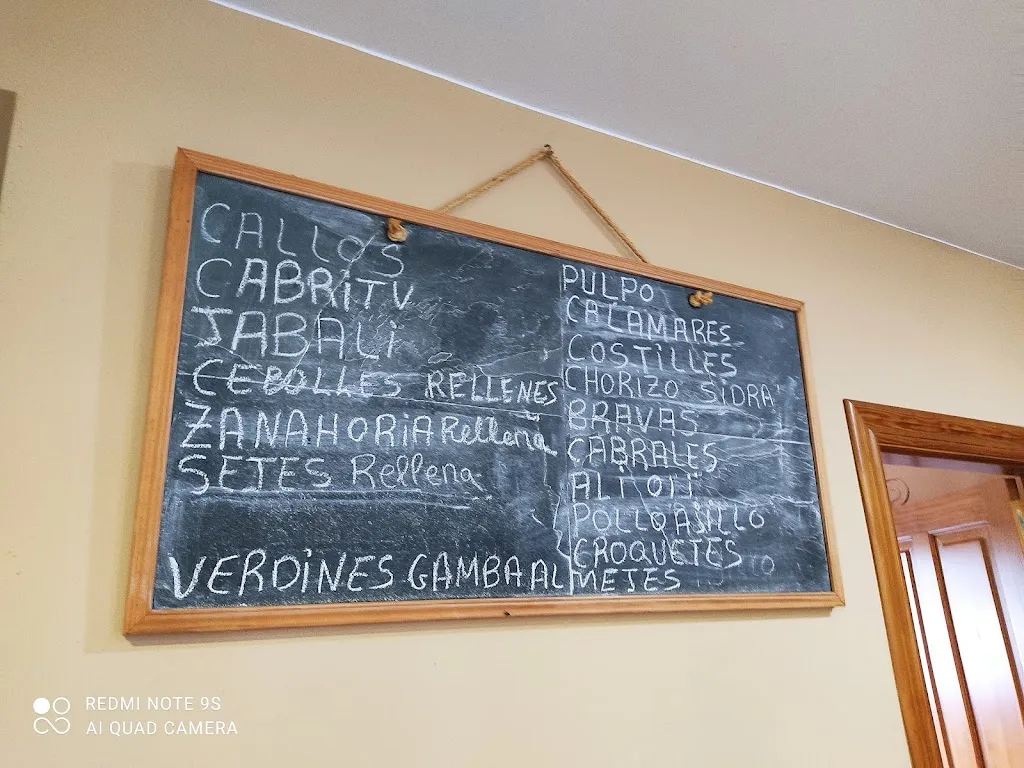 CALLOS
CABRITU
JABALI
CEBOLLES RELLENES
ZANAHORIA Rellena
SETES Rellena
VERDINES GAMBA ALMEJES
PULPO
CALAMARES
COSTILLES
CHORIZO SIDRA
BRAVAS
CABRALES
ALI OLI
POLLO AJILLO
CROQUETES
REDMI NOTE 9S
AI QUAD CAMERA